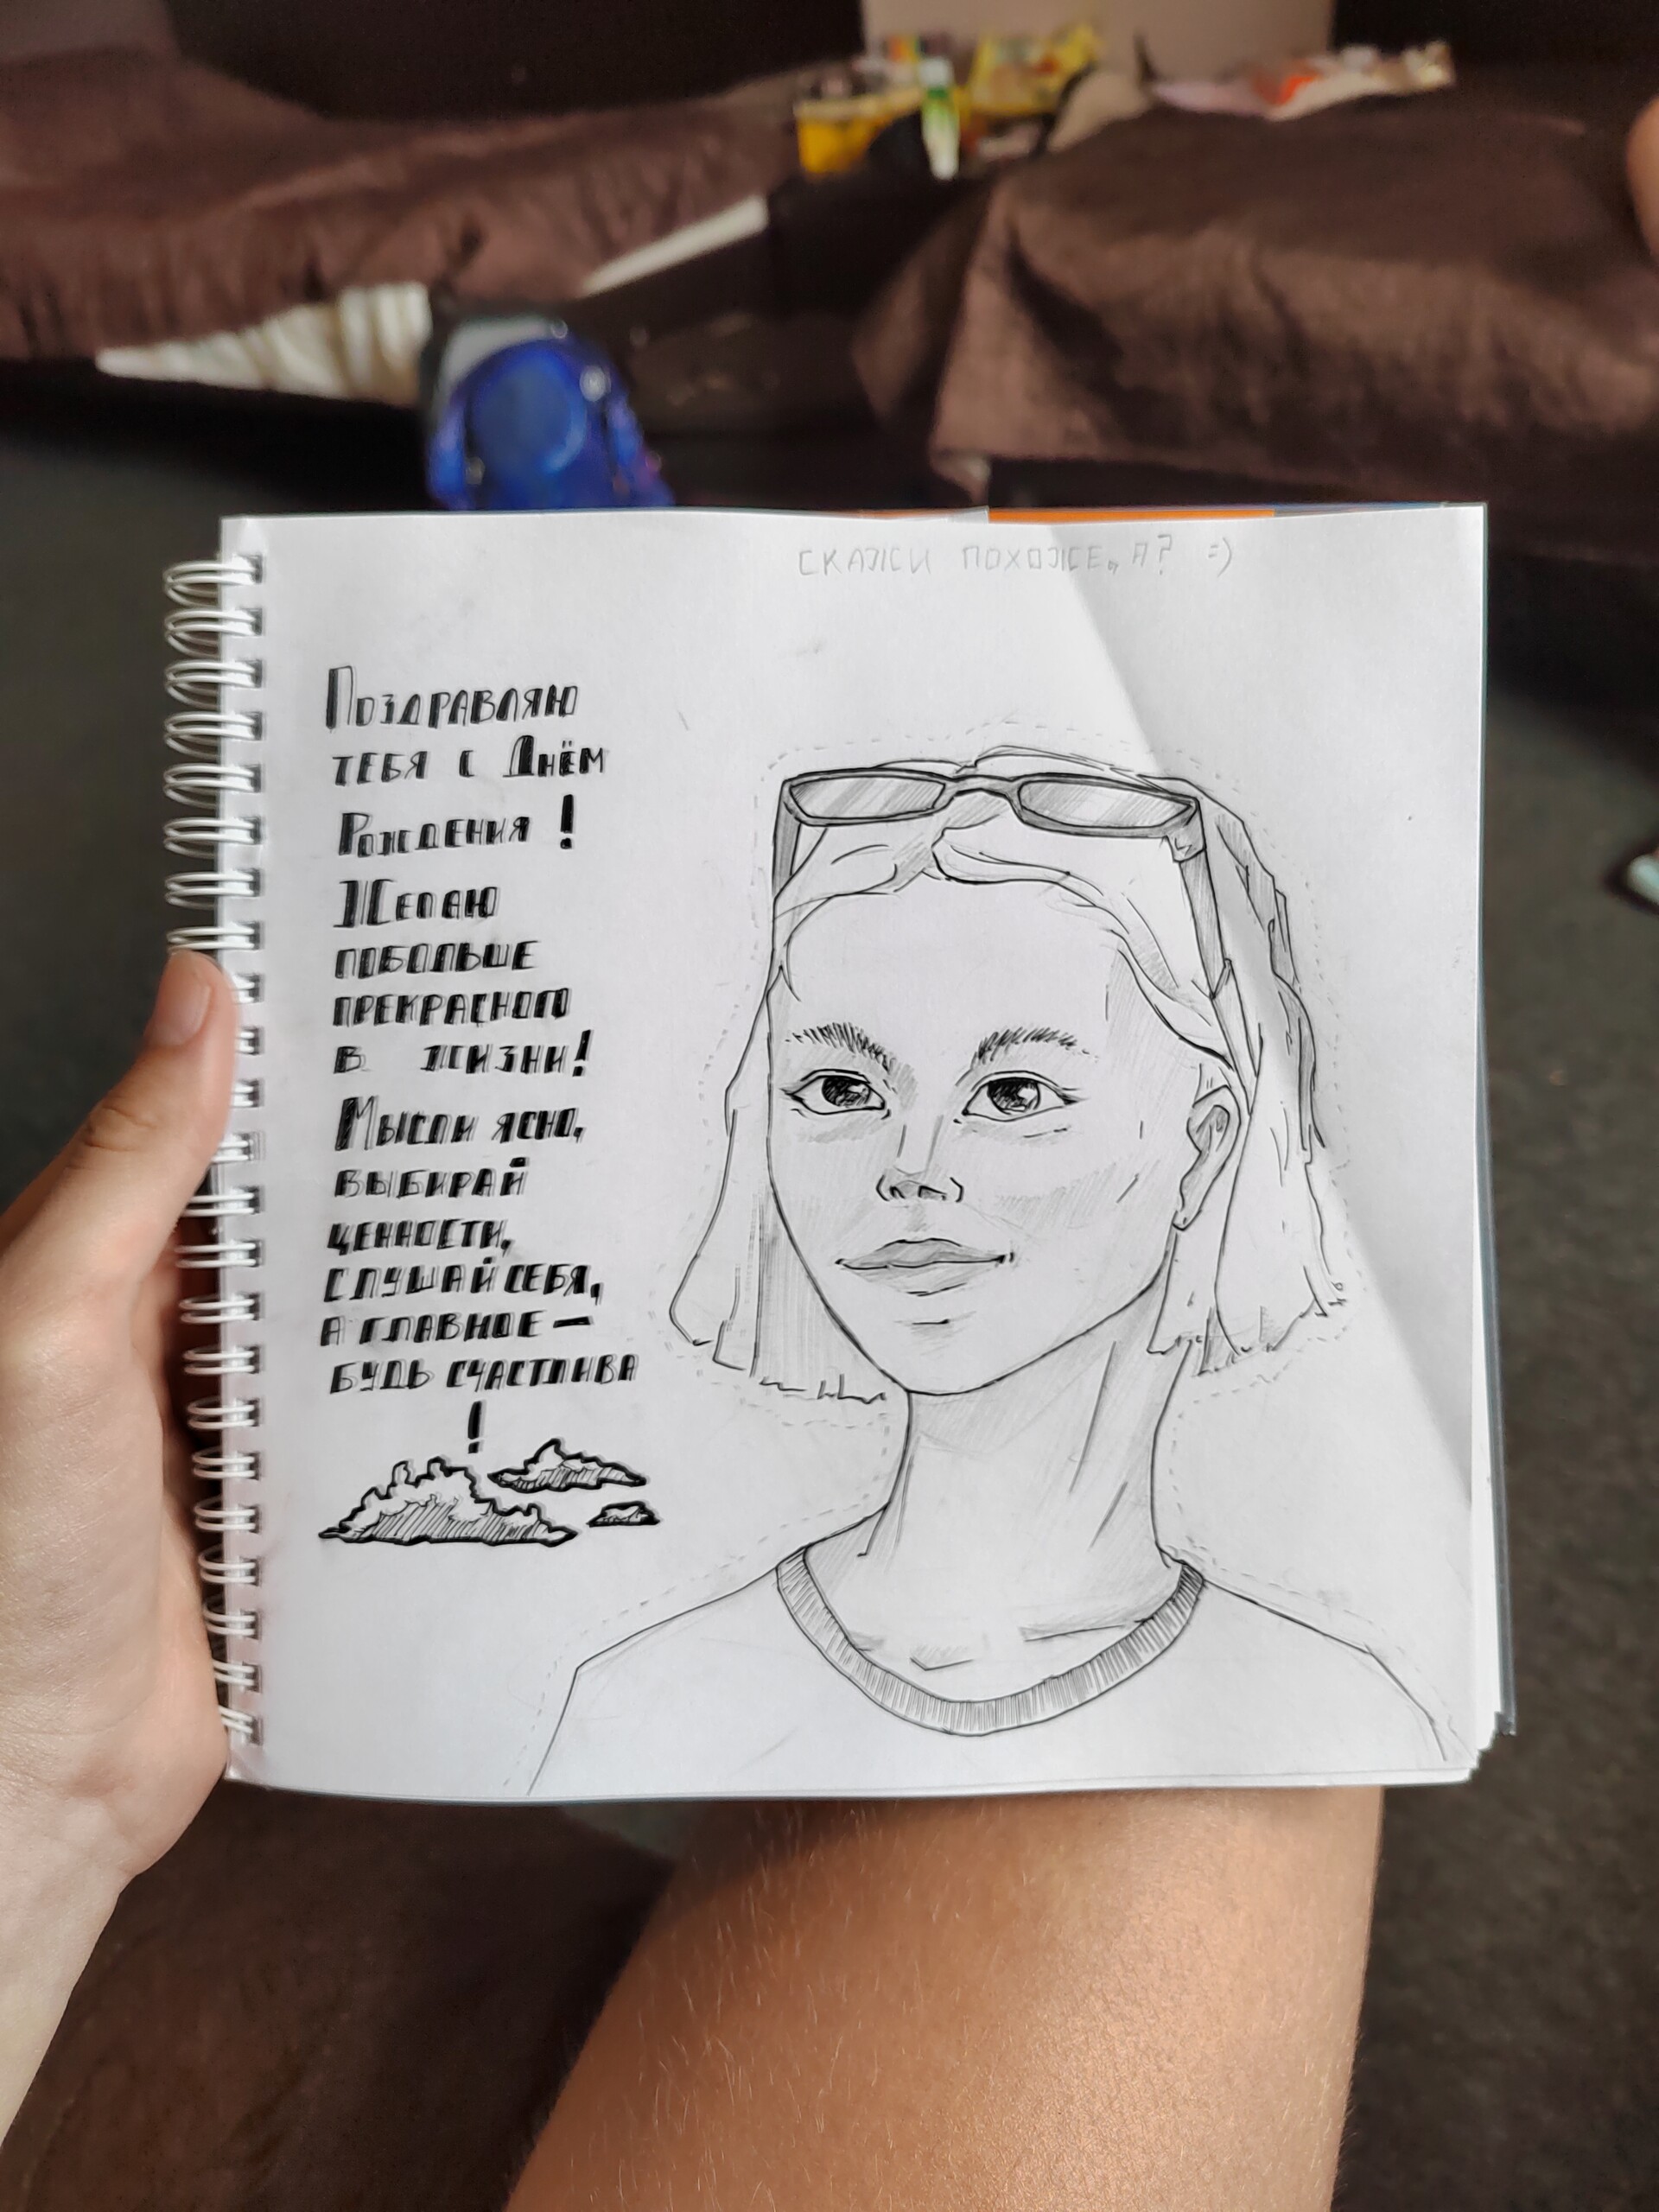 СКАЖИ ПОХОЖЕ, А? =)
ПОЗДРАВЛЯЮ
ТЕБЯ С ДНЁМ
РОЖДЕНИЯ!
ЖЕЛАЮ
ПОБОЛЬШЕ
ПРЕКРАСНОГО
В ЖИЗНИ!
МЫСЛИ ЯСНО,
ВЫБИРАЙ
ЦЕННОСТИ,
СЛУШАЙ СЕБЯ,
А ГЛАВНОЕ —
БУДЬ СЧАСТЛИВА
!